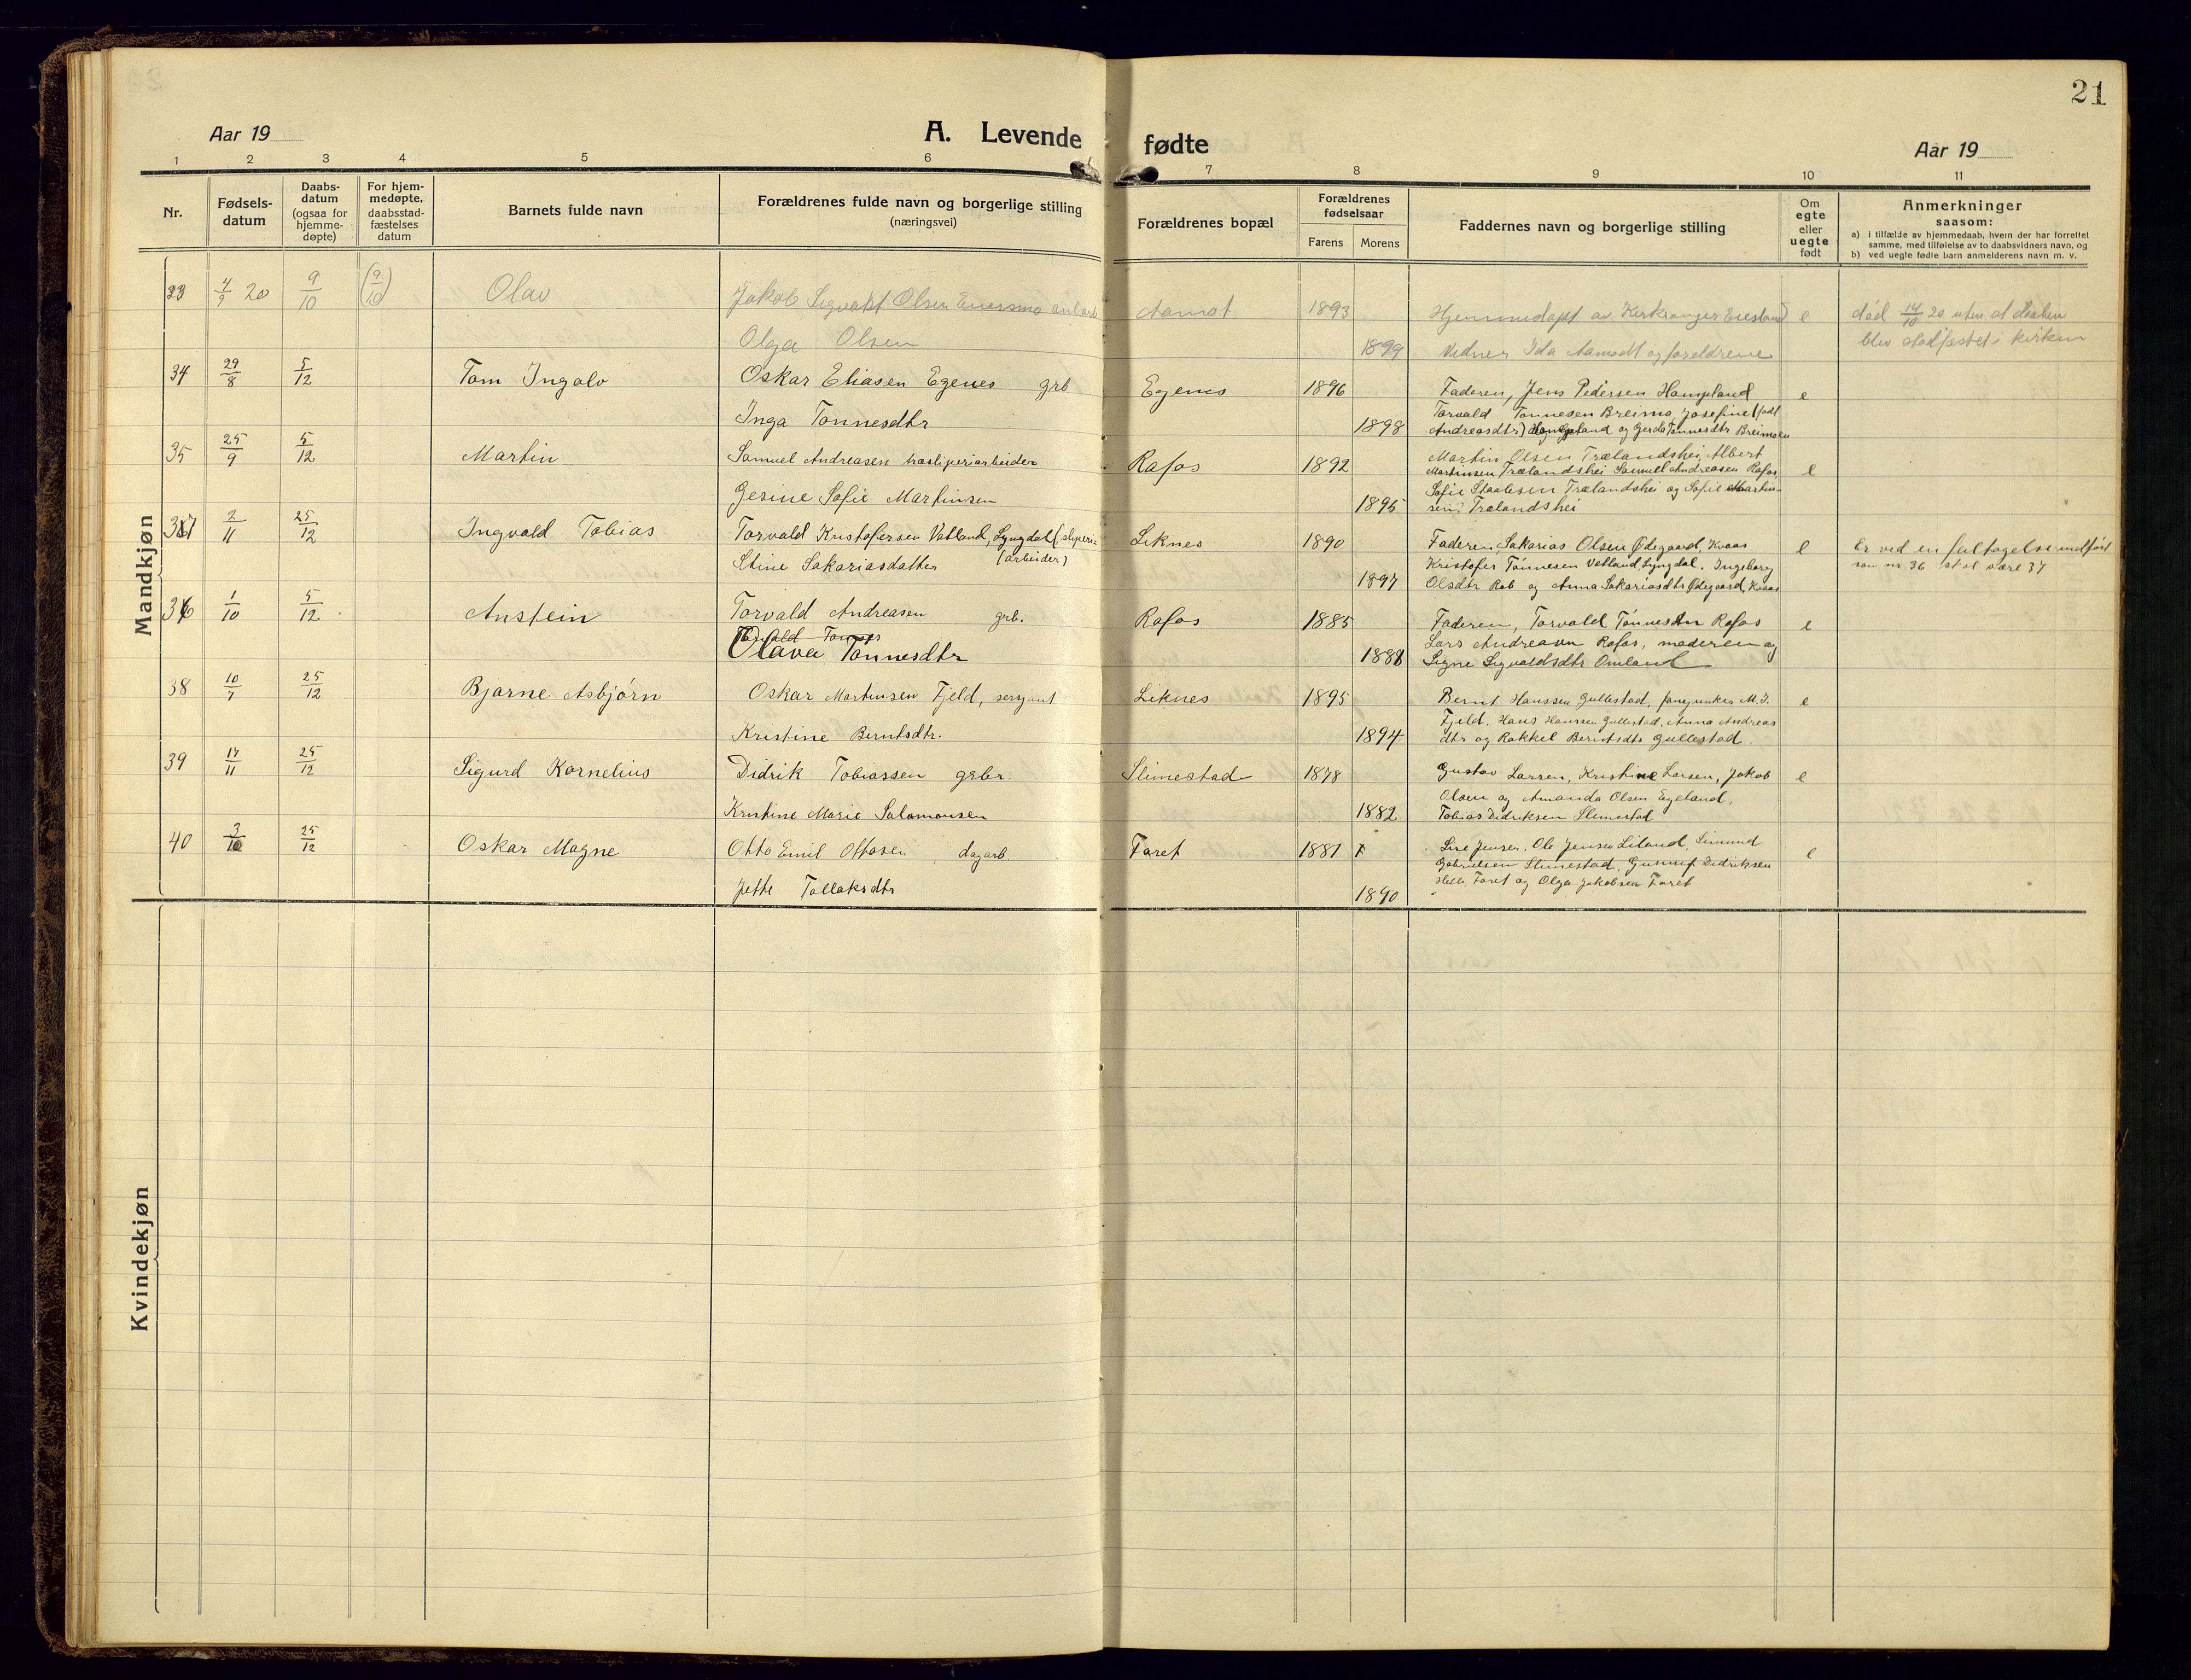 21
Aar 19
A. Levende fødte
Aar 19
1 2 3 4 5 6 7 8 9 10 11
Nr.
Fødsels-
datum
Daabs-
datum
(ogsaa for
hjemme-
døpte)
For hjem-
medøpte,
daabsstad-
fæstelses
datum
Barnets fulde navn
Forældrenes fulde navn og borgerlige stilling
(næringsvei)
Forældrenes bopæl
Forældrenes
fødselsaar
Farens Morens
Faddernes navn og borgerlige stilling
Om
egte
eller
uegte
født
Anmerkninger
saasom:
a) i tilfælde av hjemmedaab, hvem der har forrettet
samme, med tilføielse av to daabsvidners navn, og
b) ved uegte fødte barn anmelderens navn m. v.
Mandkjøn
33 4/9 20 9/10 (9/10) Olav Jakob Sigvald Olsen Aamot 1893 Hjemmedøpt av Kirkesanger Eiesland e død 14/10 20 uten at daaben
Olga Olsen 1899 Vidner Ida Aamodt og foreldrene blev stadfæstet i kirken
34 29/8 5/12 Tom Ingolv Oskar Eliasen Egenes grb Egenes 1896 Faderen, Jens Pedersen Hampland e
Torvald Tonnesen Breimo, Josefine (født
Inga Tonnesdtr 1898 Andreasdtr) og Gerda Tonnesdtr Breimoen
35 25/9 5/12 Martin Samuel Andreasen træsliperiarbeider Rafos 1892 Martin Olsen Trælandshei, Albert
Martinsen Trælandshei Samuel Andreasen Rafos e
Gesine Sofie Martinsen 1895 Sofie Staalesen Trælandshei og Sofie Martin-
sen Trælandshei
37 2/11 25/12 Ingvald Tobias Torvald Kristofersen Vatland, Lyngdal (sliperi- Liknes 1890 Faderen, Sakarias Olsen Ødegaard, Kvaas e Er ved en feiltagelse indført
Stine Sakariasdatter (arbeider) Kristofer Tonnesen Vatland Lyngdal. Ingeborg som nr 36 skal være 37
1897 Olsdtr Rob og Anna Sakariasdtr Ødegaard, Kvaas
36 1/10 5/12 Anstein Torvald Andreasen grb. Rafos 1885 Faderen, Torvald Tönnesen Rafos e
Torvald Tonnes Lars Andreasen Rafos, moderen og
Olava Tonnesdtr 1888 Signe Sigvaldsdtr Omland
38 10/7 25/12 Bjarne Asbjørn Oskar Martinsen Fjeld, sersjant Liknes 1895 Bernt Hanssen Gullestad, fanejunker M. I. e
Fjeld. Hans Hanssen Gullestad, Anna Andreas
Kristine Berntsdtr. 1894 dtr og Rakkel Berntsdtr Gullestad.
39 17/11 25/12 Sigurd Kornelius Didrik Tobiassen grbr. Slimestad 1878 Gustav Larsen, Kristine Larsen, Jakob e
Olsen og Amanda Olsen Egeland,
Kristine Marie Salamonsen 1882 Tobias Didriksen Slimestad
40 3/10 25/12 Oskar Magne Otto Emil Ottosen dagarb. Faret 1881 Lise Jensen, Ole Jensen Liland, Simund e
Gabrielsen Slimestad, Didriksen
Jette Tollaksdtr 1890 Faret og Olga Jakobsen Faret
Kvindekjøn